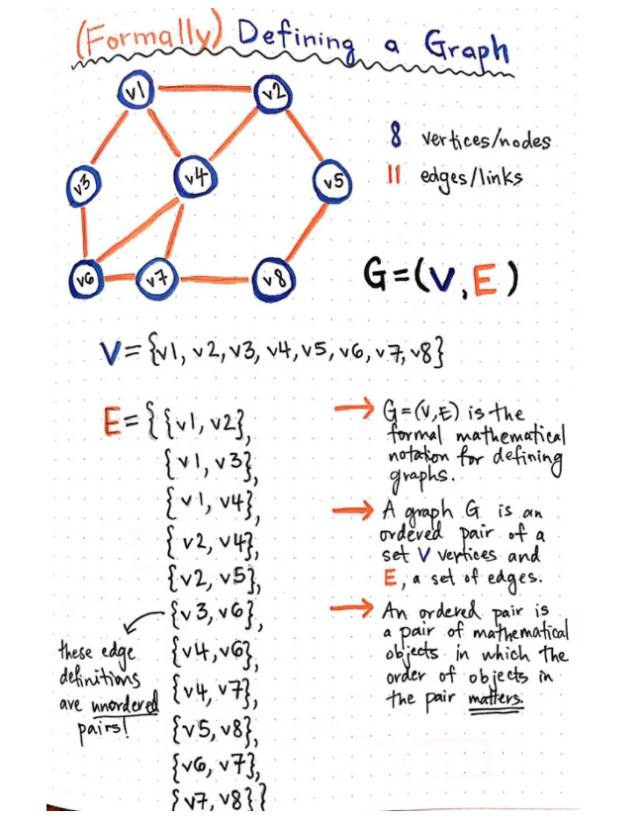 (Formally) Defining a Graph
v1
v2
v3
v4
v5
v6
v7
v8
8 vertices/nodes
11 edges/links
G=(V,E)
V={v1, v2, v3, v4, v5, v6, v7, v8}
E={{v1, v2},
{v1, v3},
{v1, v4},
{v2, v4},
{v2, v5},
{v3, v6},
{v4, v6},
{v4, v7},
{v5, v8},
{v6, v7},
{v7, v8}}
these edge
definitions
are unordered
pairs!
→ G=(V,E) is the
formal mathematical
notation for defining
graphs.
→ A graph G is an
ordered pair of a
set V vertices and
E, a set of edges.
→ An ordered pair is
a pair of mathematical
objects in which the
order of objects in
the pair matters.